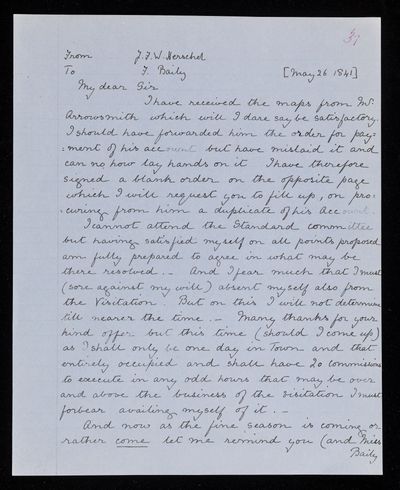 31
From J.F.W. Herschel
To F. Baily [May 26 1841]
My dear Sir
I have received the maps from Mr
Arrowsmith which will I dare say be satisfactory.
I should have forwarded him the order for pay=
=ment of his account but have mislaid it and
can no how lay hands on it I have therefore
signed a blank order on the opposite page
which I will request you to fill up, on pro:
:curing from him a duplicate of his Account.
I cannot attend the Standard committee
but having satisfied myself on all points proposed
am fully prepared to agree in what may be
there resolved. - And I fear much that I must
(sore against my will) absent myself also from
the Visitation. But on this I will not determine
till nearer the time. - Many thanks for your
kind offer but this time (should I come up)
as I shall only be one day in Town and that
entirely occupied and shall have 20 commissions
to execute in any odd hours that may be over
and above the business of the Visitation I must
forbear availing myself of it. -
And now as the fine season is coming or
rather come let me remind you (and Miss
Baily